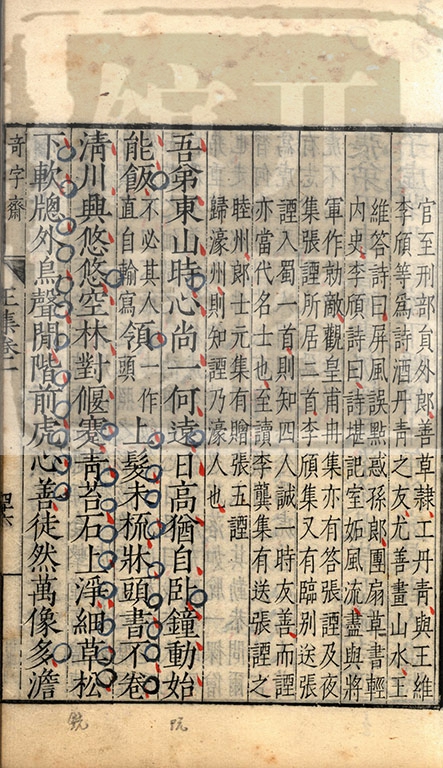 官至刑部員外郎善草隸工丹青與王維
李頎等爲詩酒丹青之友尤善畫山水王
維答詩曰屏風誤點惑孫郎團扇草書輕
內史李頎詩曰詩堪記室妬風流畫與將
軍作勍敵觀皇甫冉集亦有答張諲及夜
集張諲所居二首李頎集又有臨別送張
諲入蜀一首則知四人誠一時友善而諲
亦當代名士也至讀李龏集有送張諲之
睦州郎士元集有贈張五諲
歸濠州則知諲乃濠人也
吾弟東山時心尚一何遠日高猶自臥鐘動始
能飯不必其人直自輸寫領一作頭上髮未梳牀頭書不卷
清川興悠悠空林對偃蹇青苔石上淨細草松
下軟牎外鳥聲閒階前虎心善徒然萬像多澹
奇字齋